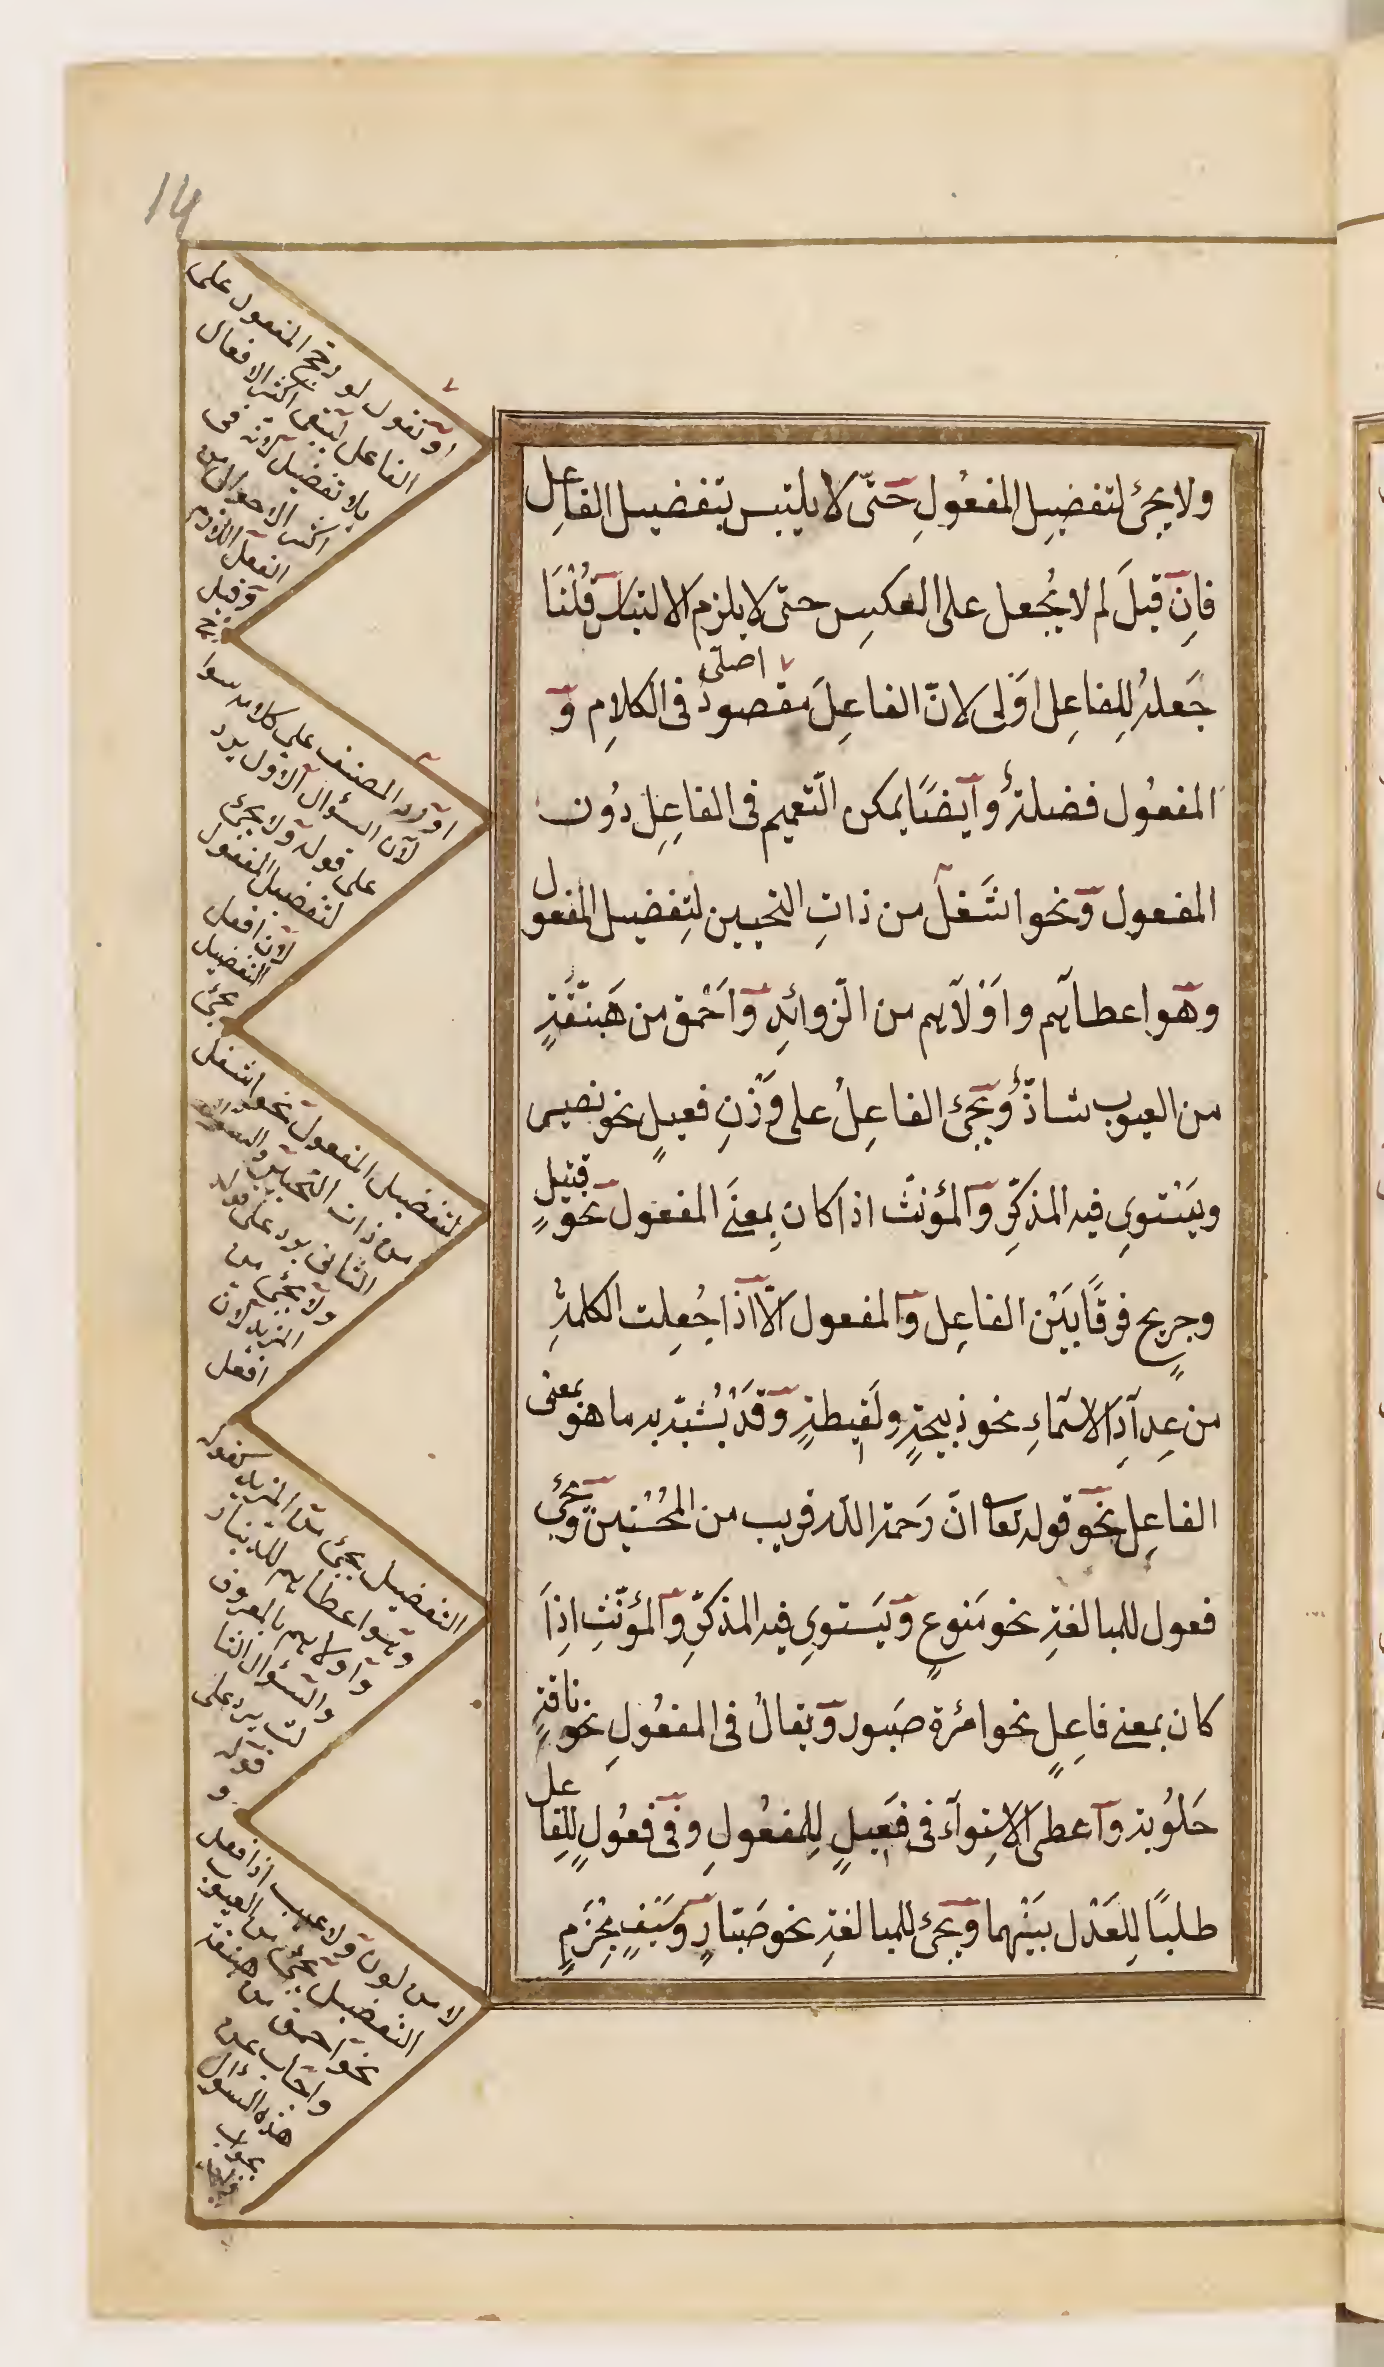 14
ولا يجئ لتفضيل المفعُولِ حَتّى لا يلتبس بتفضيل الفاعِل
فاِن قيلَ لم لا يُجعل على العكسِ حتى لا يلزم الالتباس قُلْنَا
جَعلهُ لِلفاعِل اَوْلى لانّ الفاعِلَ مقصودٌ فى الكلامِ وَ
اصلى
المفعُول فضلةٌ وايضًا يمكن التّعميم فى الفاعِلِ دُون
المفعول ونحو اشَغَل من ذاتِ النحيين لتِفضيل المفعول
وهو اعطاهم واَوْلَاهم من الزّوائدِ واَحْمق من هَبنّقةٍ
من العيوب شاذٌّ ويَجئ الفاعِلُ على وَزْنِ فعيلٍ نحو نصير
ويَسْتوِي فيه المذكّرِ والمؤنثّ اذا كان بِمعنَى المفعول نحو قتيلٍ
وجريحٍ فرقًا بَيْن الفاعِل والمفعول الّا اذا جُعِلت الكلمةُ
من عِدادِ الاسمَاءِ نحو ذبيحةٍ ولَقيطةٍ وقَدْ يُشبّه به ما هو بمعنى
الفاعِل نحو قوله تعا انّ رَحمة الله قريب من المُحْسنِين ويَجئ
فعول للمبالغةِ نحو مَنوعٍ ويَستوِي فيه المذكّرِ والمؤنّثِ اِذَا
كان بمعنى فاعِلٍ نحو امرْءة صَبور ويقالُ فى المفعُولِ نحو ناقةٍ
حَلوُبة واعطى الاِستِواَء فى فَعيلٍ لِلمفعُولِ وفى فعُولٍ لِلفاعل
طلبًا لِلعَدْل بَيْنهما ويَجئ للمبالغةِ نحو صَبّارٍ وسَيْفٍ مِجْزَمٍ
او تقول لو رجّح المفعول على
الفاعل لبقى اكثر الافعال
بلا تفضيل لانّه فى
اكثر الاحوال من
الفعل اللازم
وقيل
اورد المصنف على كلامه سوا
لان السؤال الاول يرد
على قوله ولا يجئ
لتفضيل المفعول
لان افعل
التفضيل
يجئ
لتفضيل المفعول نحو اشغل
من ذات النحيين والسؤال
الثانى يرد على قوله
ولا يجئ من
المزيد لان
افعل
التفضيل يجئ من المزيد كقوله
وهو اعطاهم للدينار
واولاهم بالمعروف
والسؤال الثا
لث يرد على
قوله
و
لا من لون ولا عيب اذ افعل
التفضيل يجئ من العيوب
نحو احمق من هبنقة
واجاب عن
هذه السؤال
بجواب